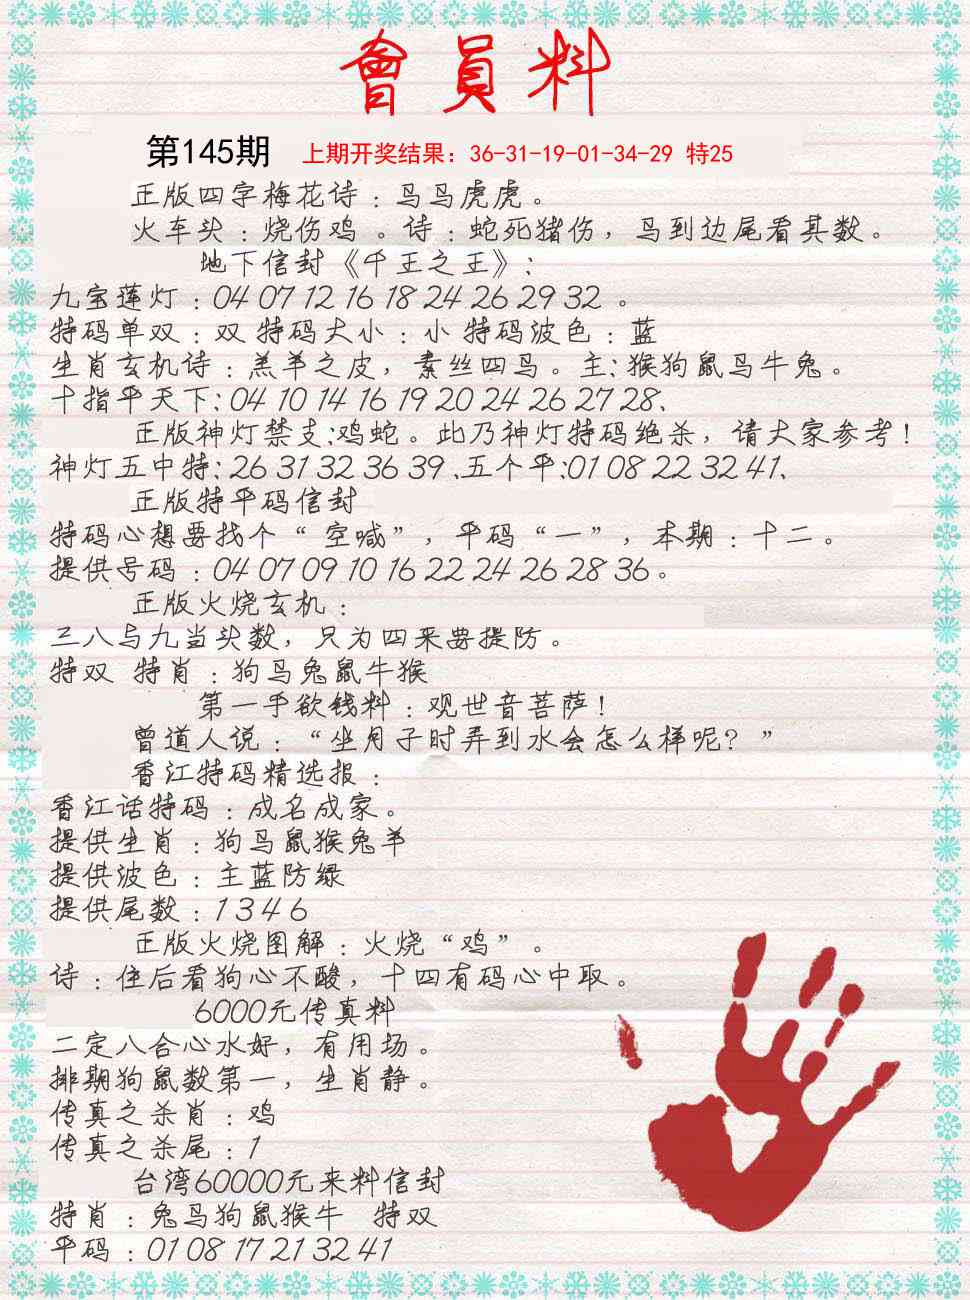 會員料
第145期 上期开奖结果：36-31-19-01-34-29 特25
正版四字梅花诗：马马虎虎。
火车头：烧伤鸡 。诗：蛇死猪伤，马到边尾看其数。
地下信封《千王之王》：
九宝莲灯：04 07 12 16 18 24 26 29 32 。
特码单双：双 特码大小：小 特码波色：蓝
生肖玄机诗：羔羊之皮，素丝四马。主：猴狗鼠马牛兔。
十指平天下：04 10 14 16 19 20 24 26 27 28、
正版神灯禁支：鸡蛇。此乃神灯特码绝杀，请大家参考！
神灯五中特：26 31 32 36 39 、五个平：01 08 22 32 41、
正版特平码信封
特码心想要找个“空喊”，平码“一”，本期：十二。
提供号码：04 07 09 10 16 22 24 26 28 36。
正版火烧玄机：
三八与九当头数，只为四来要提防。
特双 特肖：狗马兔鼠牛猴
第一手欲钱料：观世音菩萨！
曾道人说：“坐月子时弄到水会怎么样呢？”
香江特码精选报：
香江话特码：成名成家。
提供生肖：狗马鼠猴兔羊
提供波色：主蓝防绿
提供尾数：1 3 4 6
正版火烧图解：火烧“鸡”。
诗：住后看狗心不酸，十四有码心中取。
6000元传真料
二定八合心水好，有用场。
排期狗鼠数第一，生肖静。
传真之杀肖：鸡
传真之杀尾：1
台湾60000元来料信封
特肖：兔马狗鼠猴牛 特双
平码：01 08 17 21 32 41